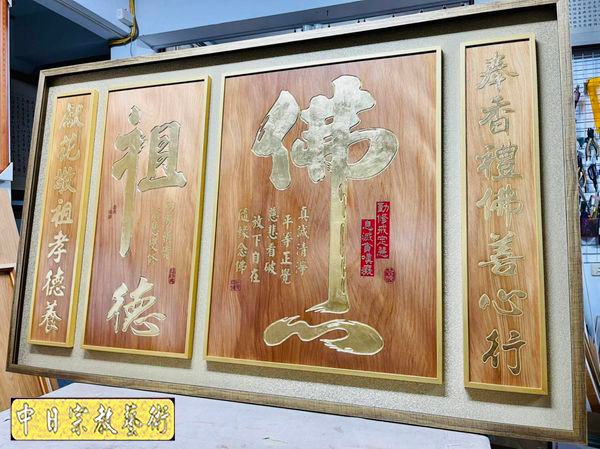 奉香禮佛善心行
佛
勤修戒定慧
息滅貪嗔癡
真誠清淨
平等正覺
慈悲看破
放下自在
隨緣念佛
祖德
獻花敬祖孝德養
中日宗教藝術